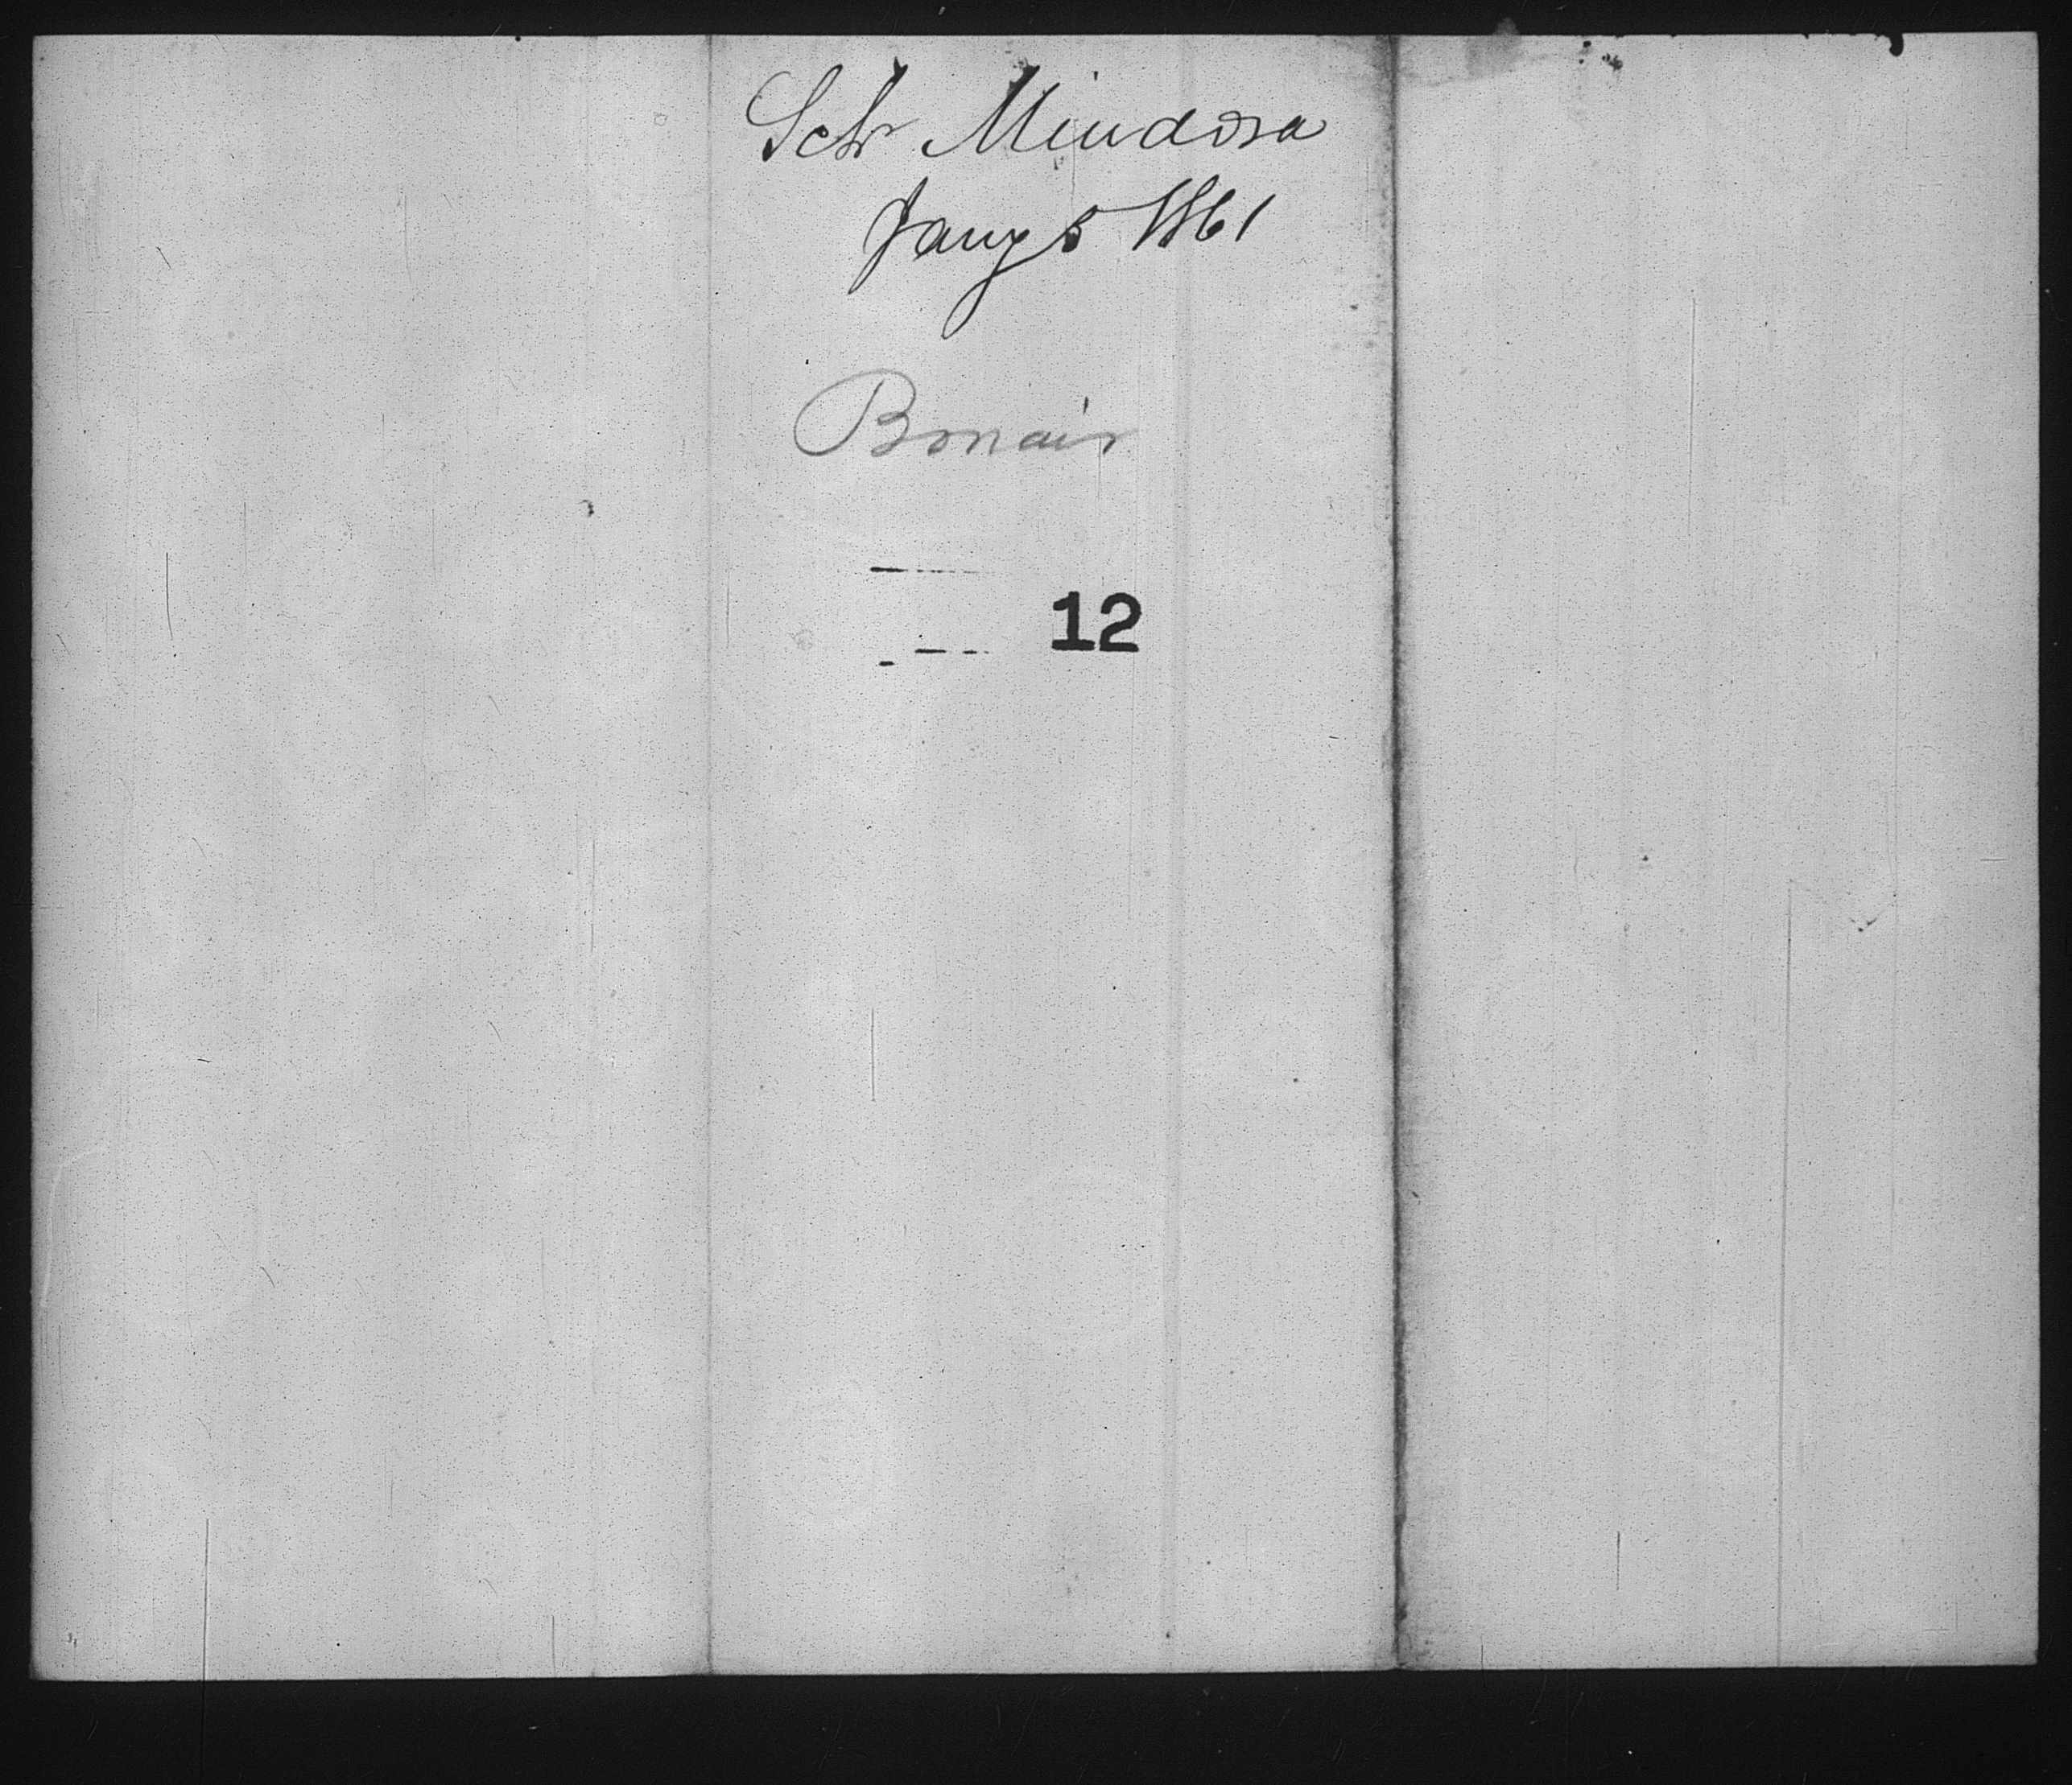 Sch Mindora
Jany 5 1861
Bonair
12